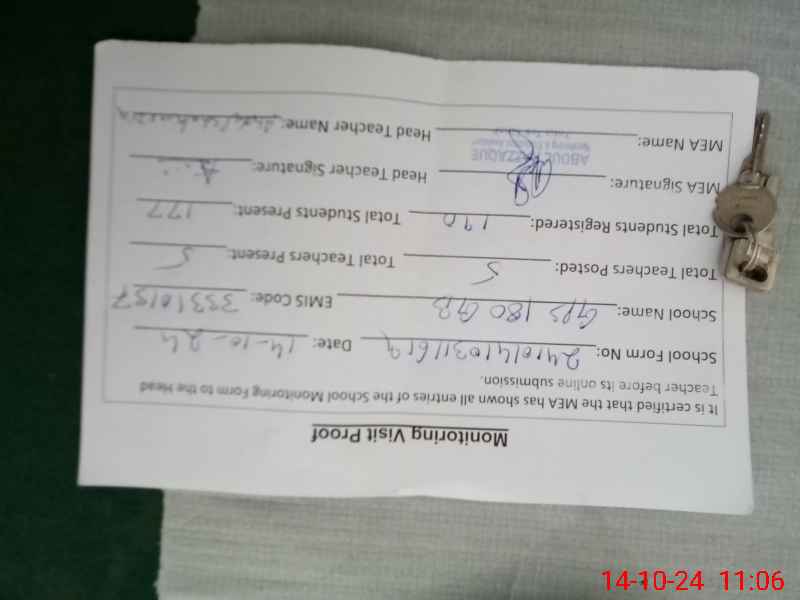 Monitoring Visit Proof
It is certified that the MEA has shown all entries of the School Monitoring Form to the Head
Teacher before its online submission.
School Form No: Date: 14-10-24
School Name: GPS 180 GB EMIS Code: 33310157
Total Teachers Posted: 5 Total Teachers Present: 5
Total Students Registered: 190 Total Students Present: 177
MEA Signature: Head Teacher Signature:
MEA Name: ABDUL REZZAQUE Head Teacher Name:
14-10-24 11:06